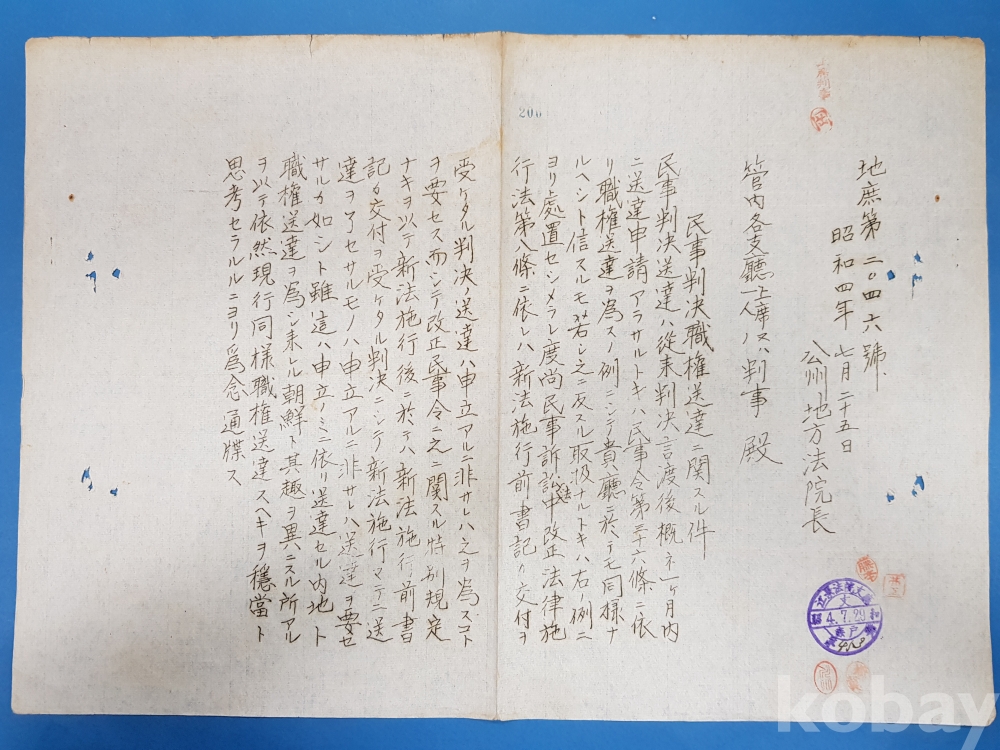 地庶第二〇四六號
昭和四年七月二十五日
公州地方法院長
管內各支廳上席又ハ一人ノ判事 殿
民事判決職權送達ニ関スル件
民事判決送達ハ從来判決言渡後概ネ一ヶ月內
ニ送達申請アラサルトキハ民事令第三十六條ニ依
リ職權送達ヲ爲スノ例ニシテ貴廳ニ於テモ同様ナ
ルヘシト信スルモ若シ之ニ反スル取扱ナルトキハ右ノ例ニ
ヨリ處置セシメラレ度尚民事訴訟法中改正法律施
行法第八條ニ依レハ新法施行前書記ノ交付ヲ
受ケタル判決ノ送達ハ申立アルニ非サレハ之ヲ爲スコト
ヲ要セス而シテ改正民事令ニ之ニ関スル特別規定
ナキヲ以テ新法施行後ニ於テハ新法施行前書
記カ交付ヲ受ケタル判決ニシテ新法施行マテニ送
達ヲ了セサルモノハ申立アルニ非サレハ送達ヲ要セ
サルカ如シト雖這ハ申立ノミニ依リ送達セル內地ト
職權送達ヲ爲シ来レル朝鮮ト其趣ヲ異ニスル所アル
ヲ以テ依然現行同様職權送達スヘキヲ穩當ト
思考セラルルニヨリ爲念通牒ス
200
4.7.29
kobay